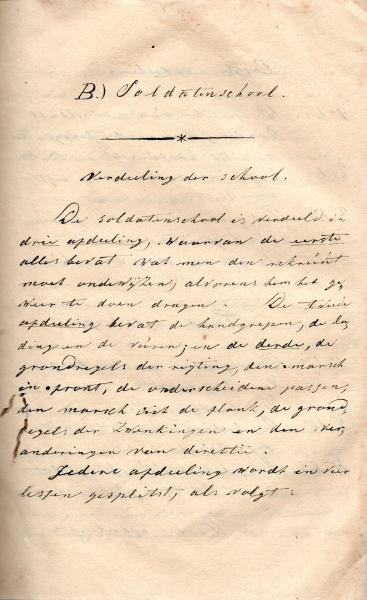 B.) Soldatenschool.
Verdeeling der school.
De soldatenschool is verdeeld in
drie afdeeling, waarvan de eerste
alles bevat wat men den rekruut
moet onderwijzen, alvorens hem het ge,
weer te doen dragen. De
afdeeling bevat de handgrepen, de la,
ding en de vuren; en de derde, de
grondregels der rigting, den marsch
in front, de onderscheidene passen,
den marsch uit de flank, de grond,
regels der Zwenkingen en den ver,
anderingen van direktie.
Iedere afdeeling wordt in vier
lessen gesplitst, als volgt: